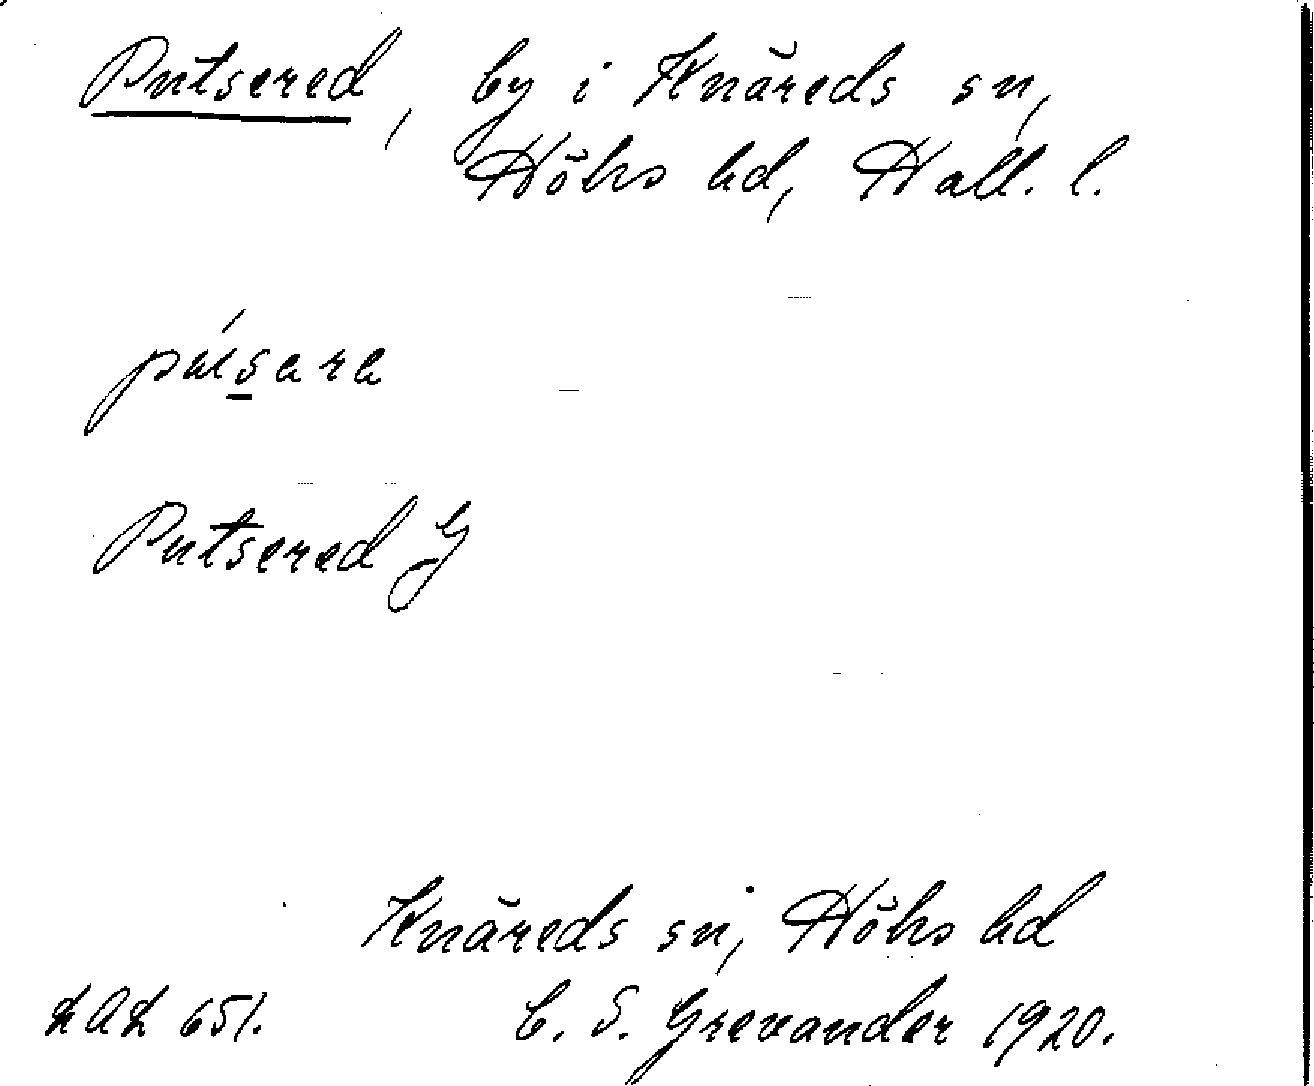 Putsered, by i Knäreds sn,
Höks hd, Hall. l.
púsara
Putsered G
Knäreds sn, Höks hd
LAL 651. C. S. Grevander 1920.